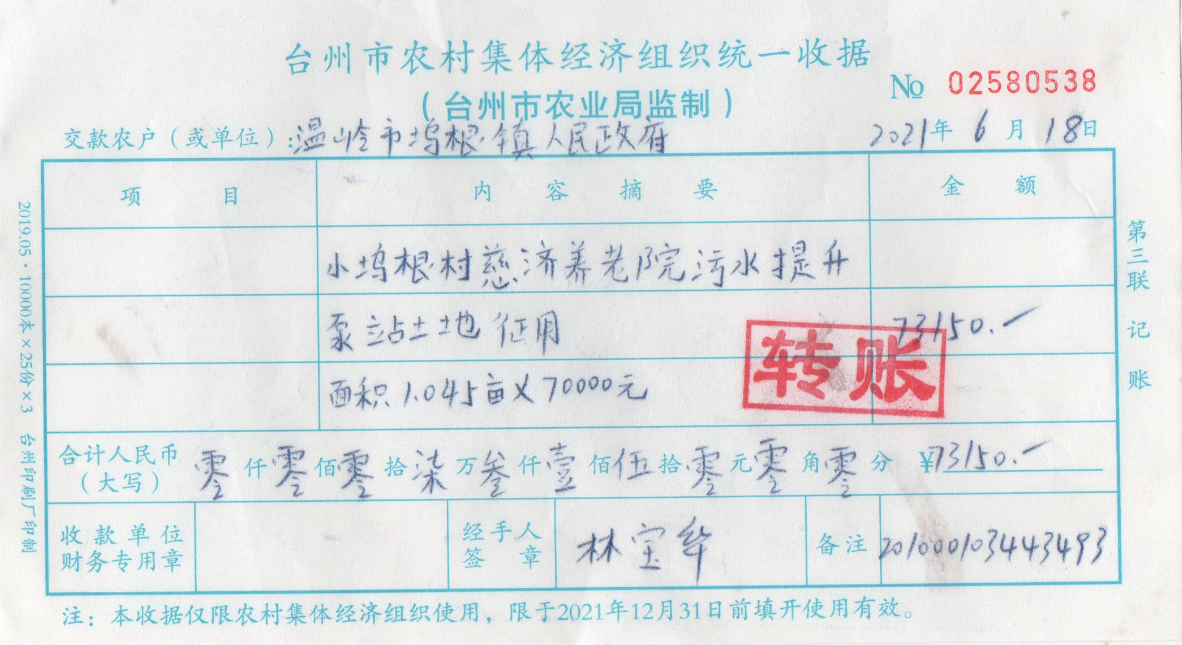 台州市农村集体经济组织统一收据
(台州市农业局监制)
№ 02580538
交款农户(或单位):温岭市坞根镇人民政府 2021年 6 月 18日
项 目 内 容 摘 要 金 额
小坞根村慈济养老院污水提升
泵站土地征用 73150.-
面积1.045亩×70000元
转账
合计人民币(大写) 零仟零佰零拾柒万叁仟壹佰伍拾零元零角零分 ¥73150.-
收款单位财务专用章 经手人签章 林宝华 备注 201000103443493
注:本收据仅限农村集体经济组织使用,限于2021年12月31日前填开使用有效。
第三联 记账
2019.05·10000本×25份×3 台州印刷厂印制